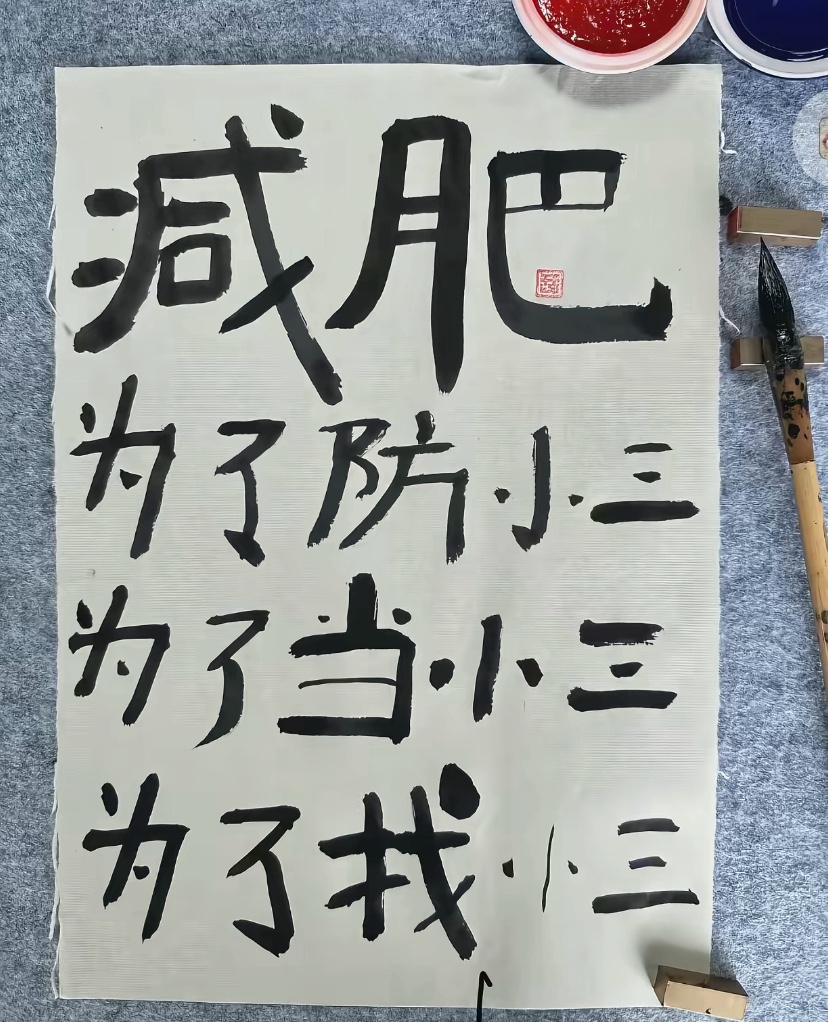 减肥
为了防小三
为了当小三
为了找小三